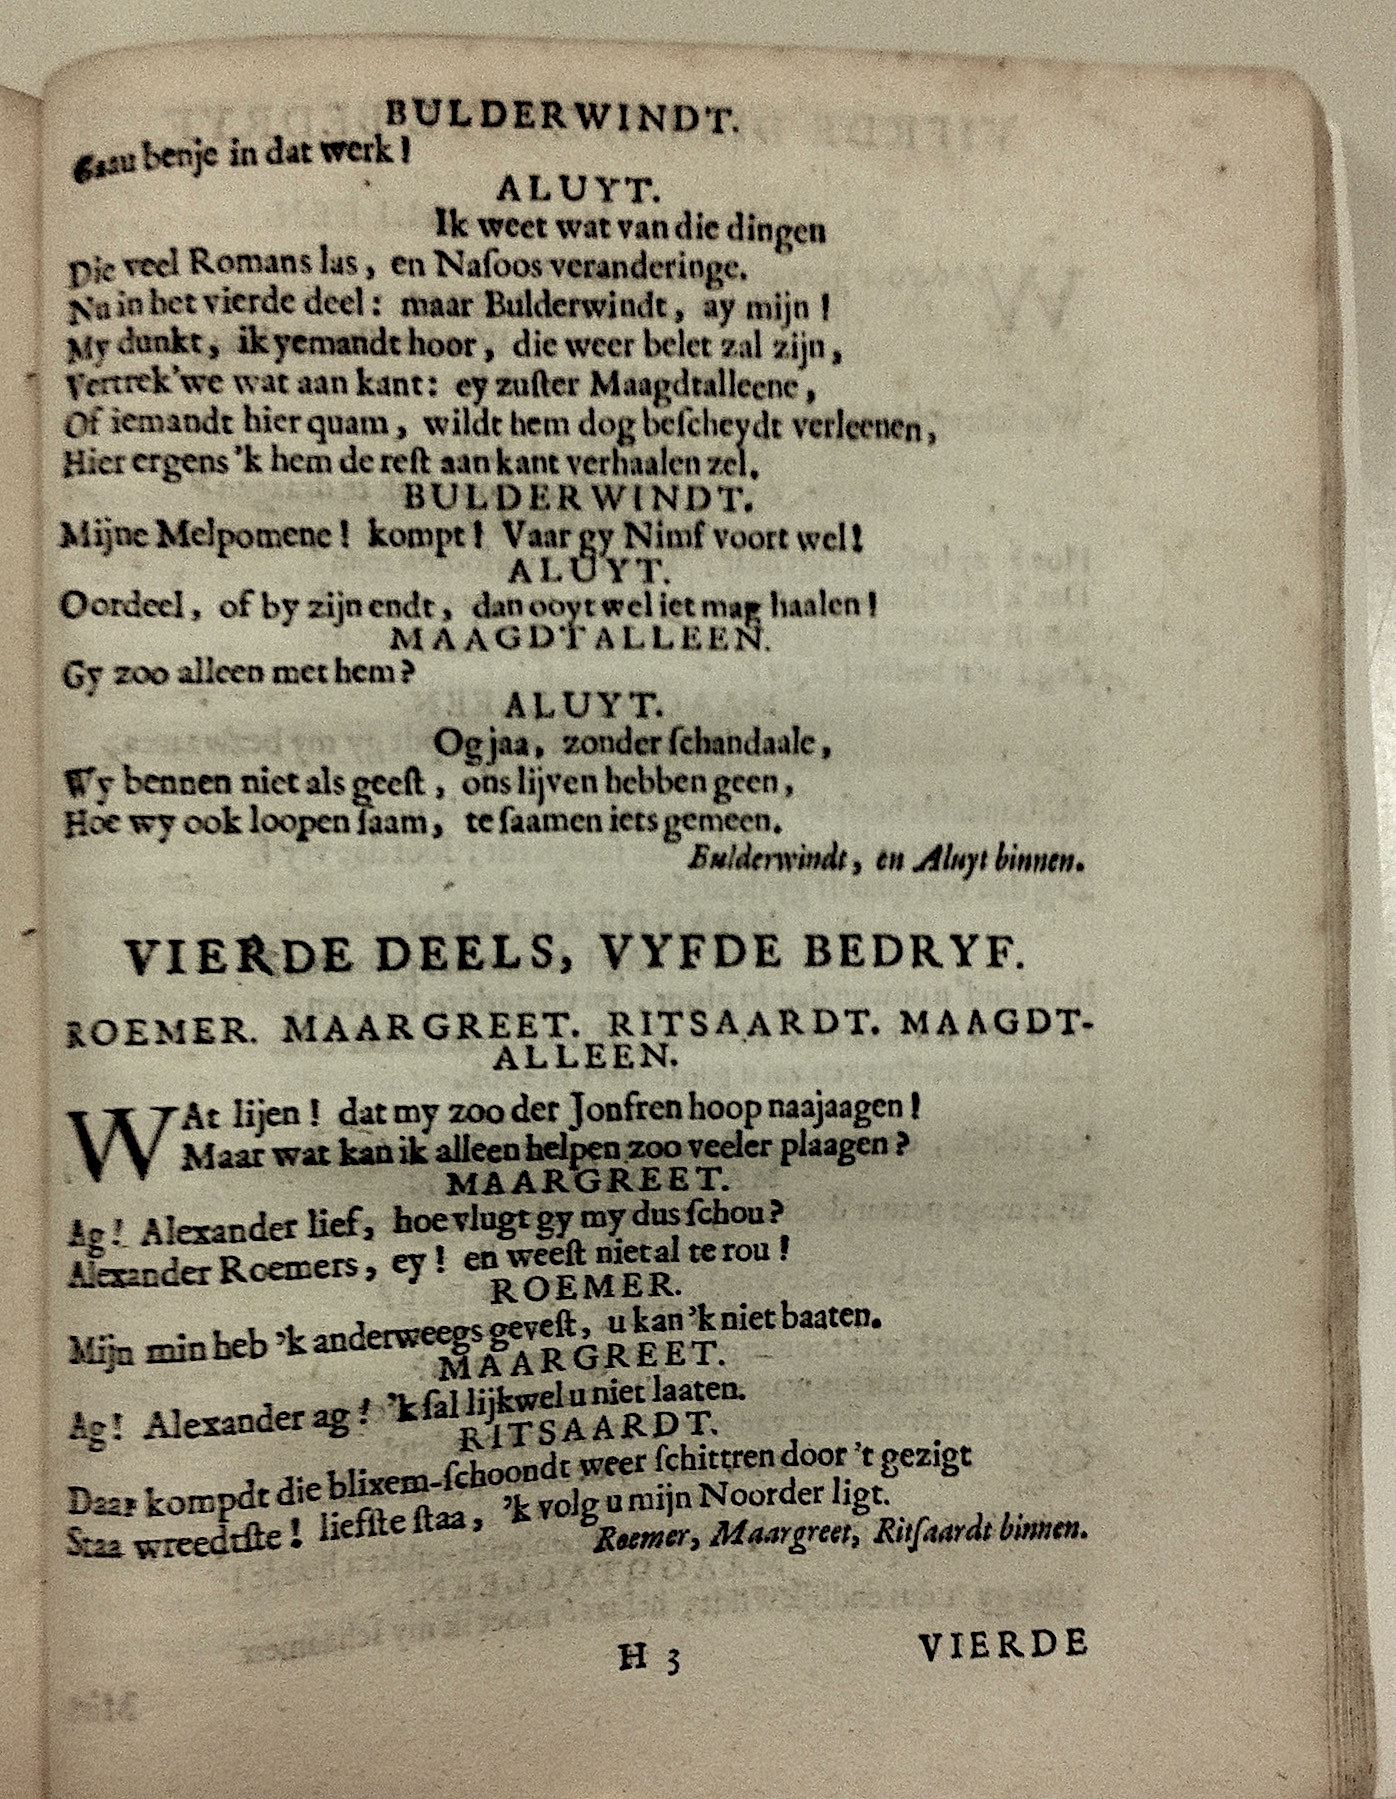 BULDERWINDT.
Gaau benje in dat werk!
ALUYT.
Ik weet wat van die dingen
Die veel Romans las, en Naſoos veranderinge.
Nu in het vierde deel: maar Bulderwindt, ay mijn!
My dunkt, ik yemandt hoor, die weer belet zal zijn,
Vertrek'we wat aan kant: ey zuſter Maagdtalleene,
Of iemandt hier quam, wildt hem dog beſcheydt verleenen,
Hier ergens 'k hem de reſt aan kant verhaalen zel.
BULDERWINDT.
Mijne Melpomene! kompt! Vaar gy Nimf voort wel!
ALUYT.
Oordeel, of by zijn endt, dan ooyt wel iet mag haalen!
MAAGDTALLEEN.
Gy zoo alleen met hem?
ALUYT.
Og jaa, zonder ſchandaale,
Wy bennen niet als geeſt, ons lijven hebben geen,
Hoe wy ook loopen ſaam, te ſaamen iets gemeen.
Bulderwindt, en Aluyt binnen.
VIERDE DEELS, VYFDE BEDRYF.
ROEMER. MAARGREET. RITSAARDT. MAAGDT-
ALLEEN.
WAt lijen! dat my zoo der Jonfren hoop naajaagen!
Maar wat kan ik alleen helpen zoo veeler plaagen?
MAARGREET.
Ag! Alexander lief, hoe vlugt gy my dus ſchou?
Alexander Roemers, ey! en weeſt niet al te rou!
ROEMER.
Mijn min heb 'k anderweegs geveſt, u kan 'k niet baaten.
MAARGREET.
Ag! Alexander ag! 'k ſal lijkwel u niet laaten.
RITSAARDT.
Daar kompdt die blixem-ſchoondt weer ſchittren door 't gezigt
Staa wreedtſte! liefſte ſtaa, 'k volg u mijn Noorder ligt.
Roemer, Maargreet, Ritſaardt binnen.
H 3
VIERDE